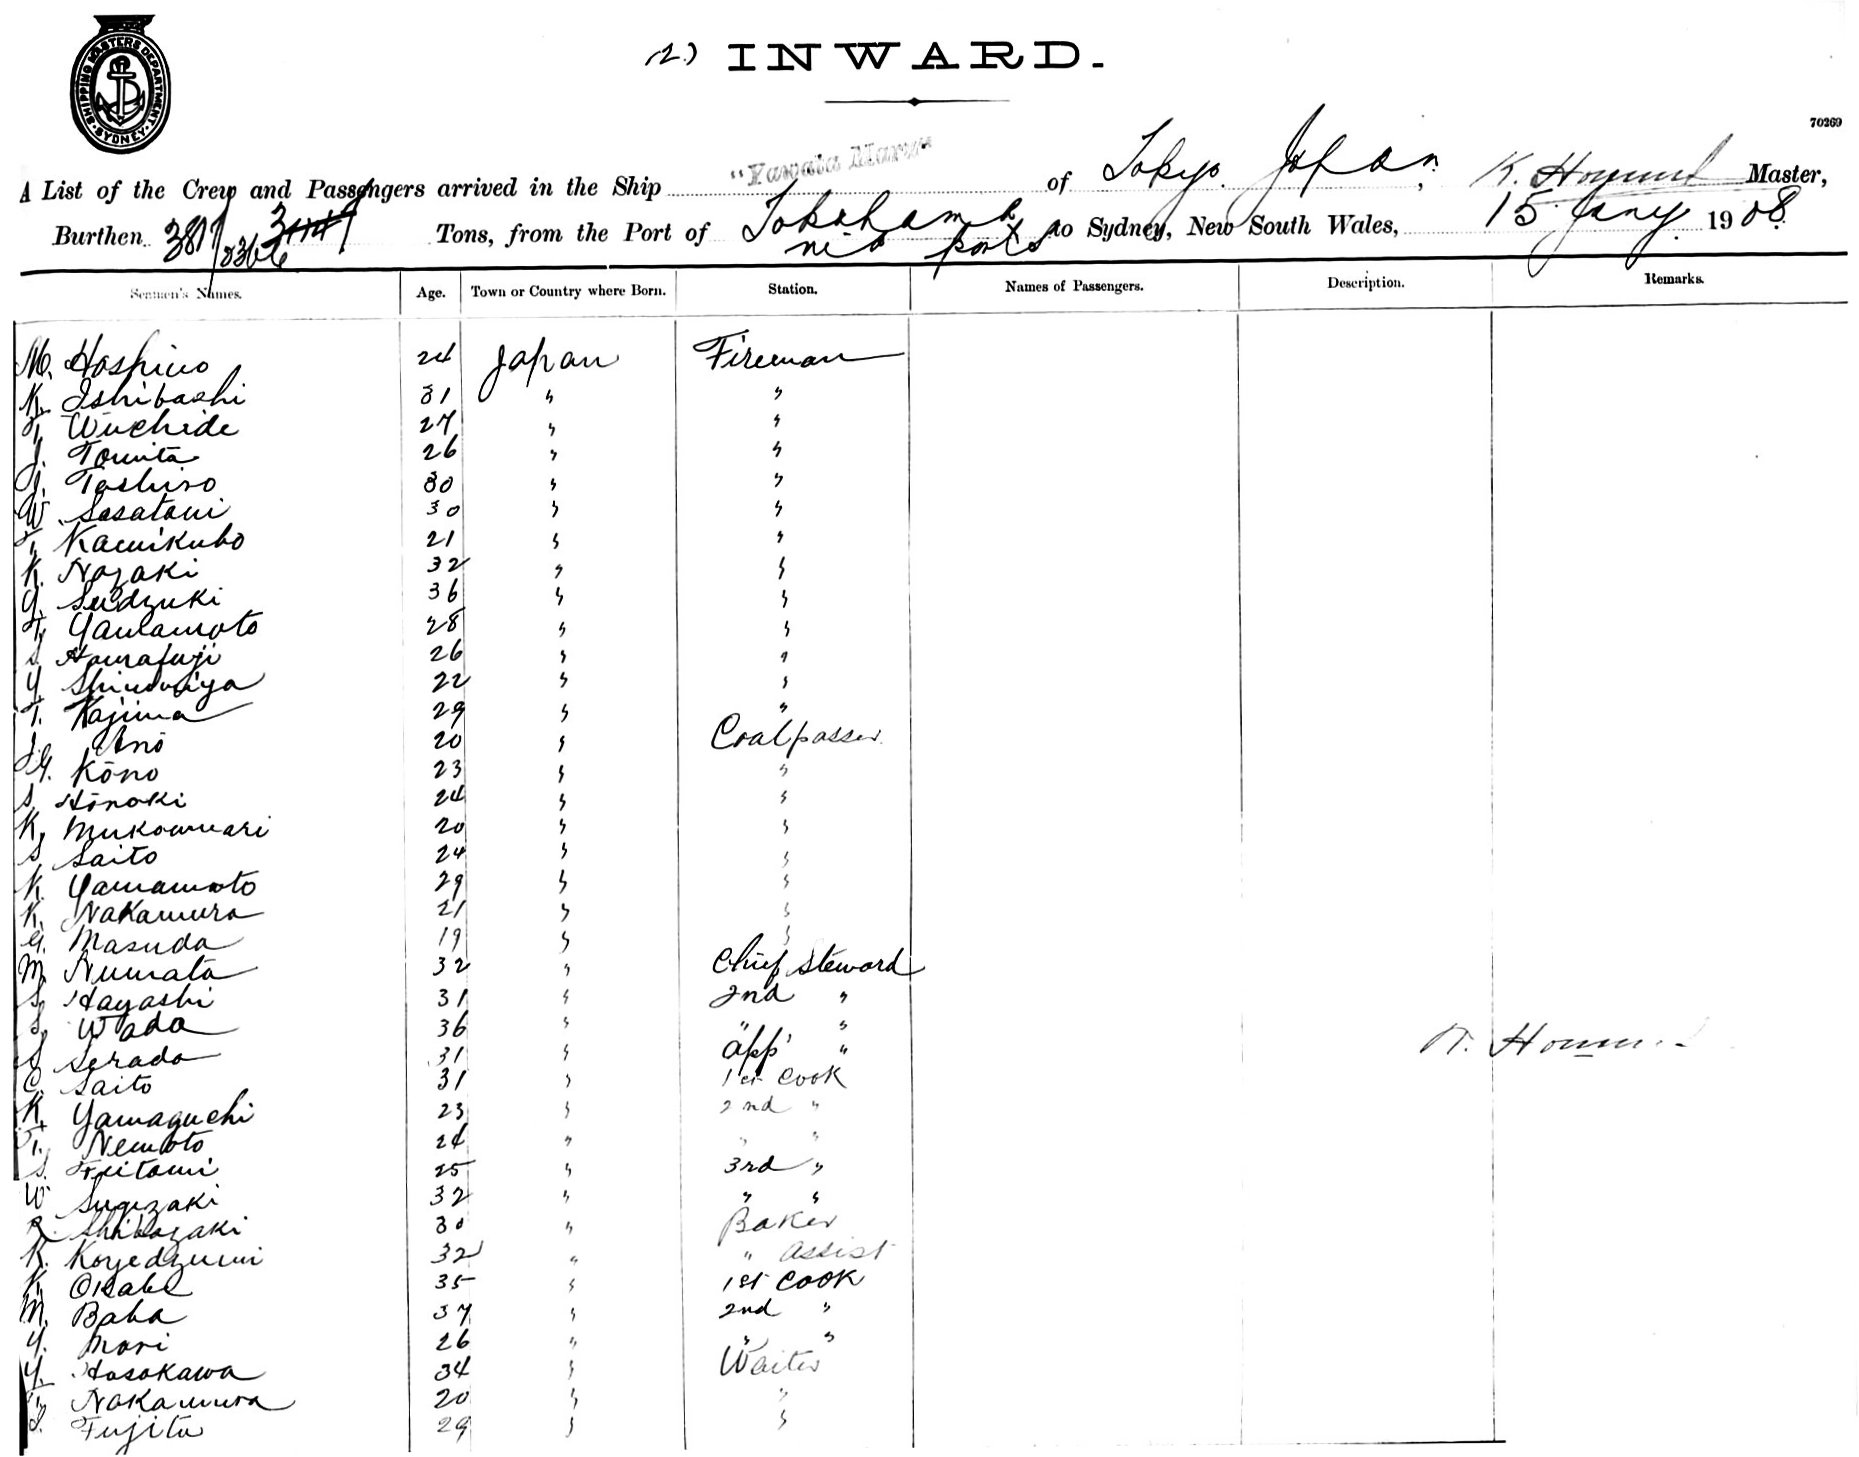 SHIPPING MASTERS DEPARTMENT
SYDNEY
(2.) INWARD.
70269
A List of the Crew and Passengers arrived in the Ship "Yawata Maru" of Tokyo. Japan, K. Master,
Burthen 3817/2366 Tons, from the Port of Yokohama to Sydney, New South Wales, 15 Jany 1908.
ports
Seamen's Names. Age. Town or Country where Born. Station. Names of Passengers. Description. Remarks.
M. Hoshino 24 Japan Fireman
K. Ishibashi 31 " "
T. Wuchide 27 " "
J. Tomita 26 " "
J. Tashiro 30 " "
W. Sasatani 30 " "
T. Kamikubo 21 " "
K. Nozaki 32 " "
G. Sudzuki 36 " "
T. Yamamoto 28 " "
S. Hamafuji 26 " "
Y. Shinomiya 22 " "
T. Kajima 29 " "
J. Ano 20 " Coalpasser
G. Kōno 23 " "
S. Hōnoki 24 " "
K. Mukowmari 20 " "
S. Saito 24 " "
K. Yamamoto 29 " "
K. Nakamura 21 " "
G. Masuda 19 " "
M. Numata 32 " Chief Steward
S. Hayashi 31 " 2nd "
S. Wada 36 " " "
S. Serada 31 " app' "
C. Saito 31 " 1st Cook
K. Yamaguchi 23 " 2nd "
T. Nemoto 24 " " "
S. 25 " 3rd "
W. Sugizaki 32 " " "
R. Shibazaki 30 " Baker
K. Koyedzumi 32 " " Assist
K. Okabe 35 " 1st Cook
M. Baba 37 " 2nd "
Y. Mori 26 " " "
Y. Hosokawa 34 " Waiter
T. Nakamura 20 " "
S. Fujita 29 " "